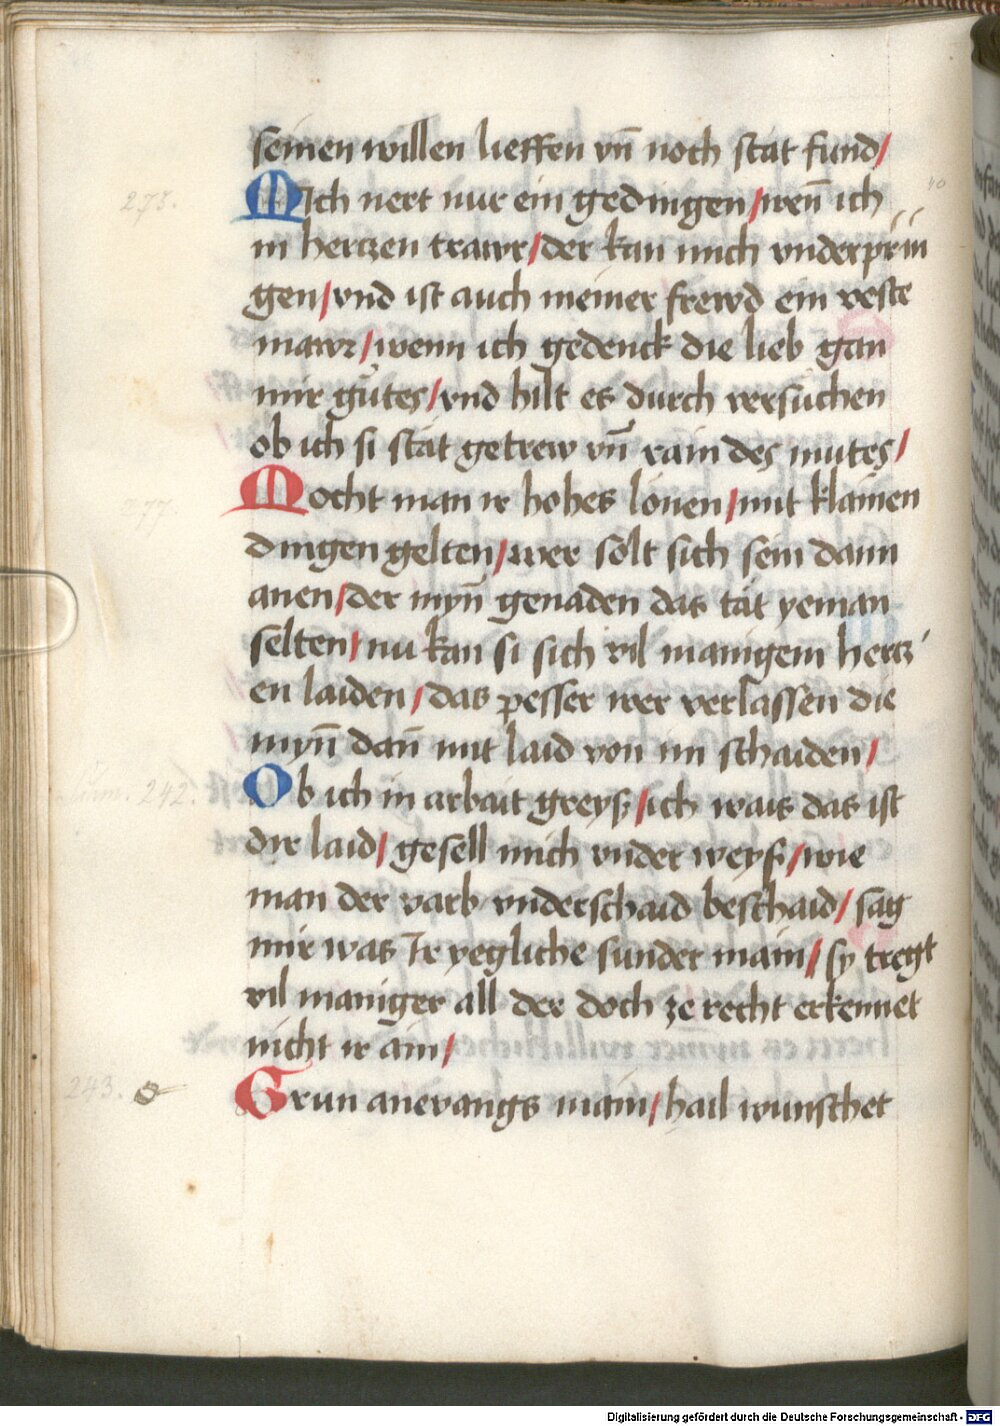 seinen willen lieffen vn̄ noch stät fund /
Mich nert nur ein gedingen / wen̄ ich
in hertzen trawr / der kan mich vnderprin
gen / vnd ist auch meiner frewd ein veste
mawr / wenn ich gedenck die lieb gan
mir gůtes / vnd hilt es durch versůchen
ob ich si stät getrew vn̄ rain des mutes /
Mocht man ir hohes lonen / mit klainen
dingen gelten / wer solt sich sein dann
anen / der myn̄ genaden das tät yeman
selten / nu kan si sich vil manigem hertz
en laiden / das pesser wer verlassen die
myn̄ dan̄ mit laid von im schaiden /
Ob ich in arbait greyß / ich wais das ist
dir laid / gesell mich vnder weyß / wie
man der varb vnderschaid beschaid / sag
mir was Ir yegliche sunder main / sy tregt
vil maniger all der doch ze recht erkennet
nicht ir ain /
Grun anevangs main / hail wunschet
278.
277
242.
243.
40
Digitalisierung gefördert durch die Deutsche Forschungsgemeinschaft - DFG